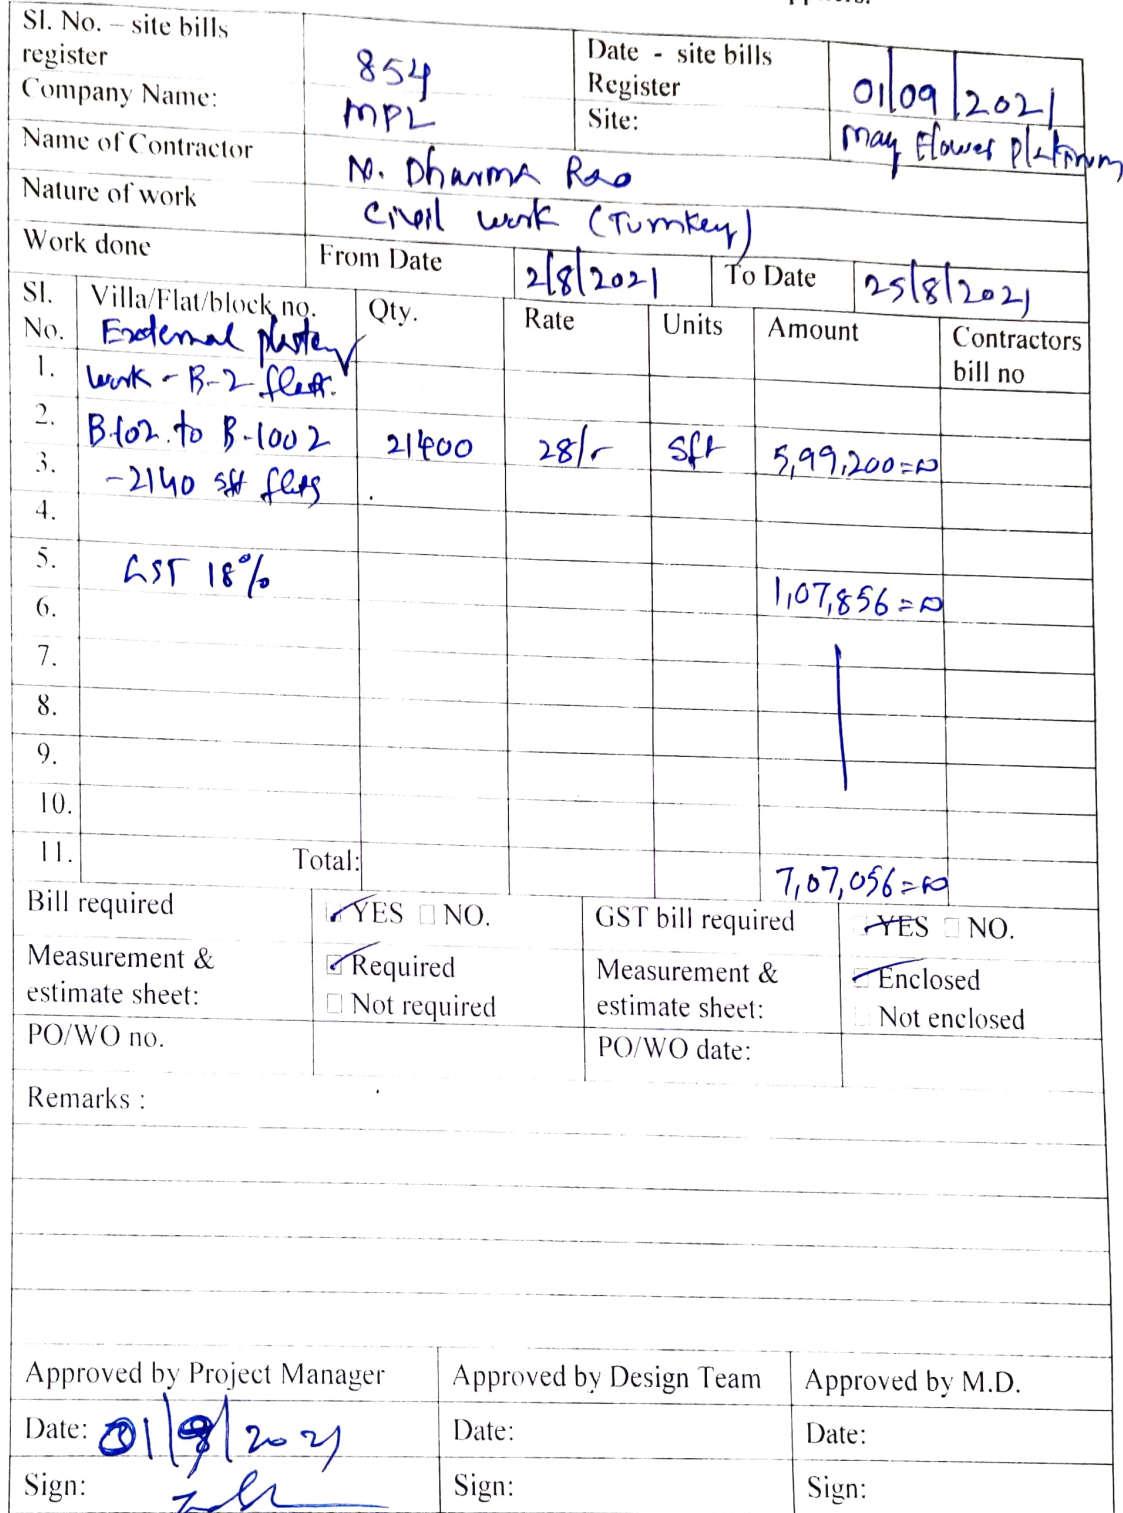 Sl. No. – site bills register 854 Date - site bills Register 01/09/2021
Company Name: MPL Site: May Flower Platinum
Name of Contractor N. Dharma Rao
Nature of work Civil work (Turnkey)
Work done From Date 2/8/2021 To Date 25/8/2021
Sl. No. Villa/Flat/block no. Qty. Rate Units Amount Contractors bill no
External plastery
1. work - B-2 flats.
2. B-102 to B-1002 21400 28/- sft 5,99,200=00
3. -2140 sft flats
4.
5. GST 18% 1,07,856=00
6.
7.
8.
9.
10.
11. Total: 7,07,056=00
Bill required YES NO. GST bill required YES NO.
Measurement & estimate sheet: Required Measurement & estimate sheet: Enclosed
Not required Not enclosed
PO/WO no. PO/WO date:
Remarks :
Approved by Project Manager Approved by Design Team Approved by M.D.
Date: 01/9/2021 Date: Date:
Sign: Sign: Sign: